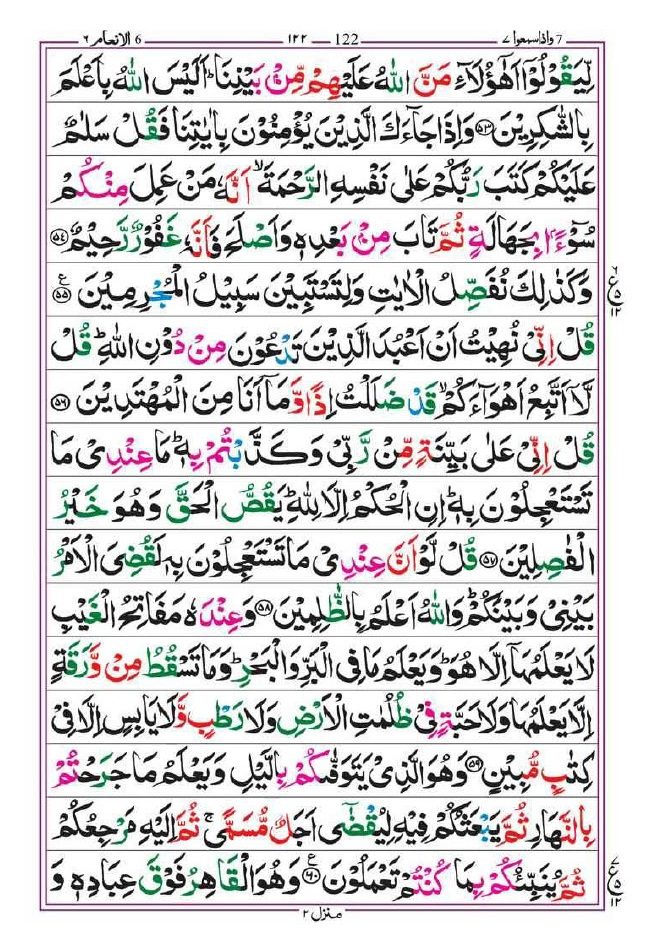 ٦ الانعام 6 ١٢٢ 122 ٧ واذا سمعوا 7
لِّيَقُوْلُوْۤا اَهٰۤؤُلَآءِ مَنَّ اللّٰهُ عَلَيْهِمْ مِّنْۢ بَيْنِنَا ؕ اَلَيْسَ اللّٰهُ بِاَعْلَمَ
بِالشّٰكِرِيْنَ ﴿٥٣﴾ وَاِذَا جَآءَكَ الَّذِيْنَ يُؤْمِنُوْنَ بِاٰيٰتِنَا فَقُلْ سَلٰمٌ
عَلَيْكُمْ كَتَبَ رَبُّكُمْ عَلٰى نَفْسِهِ الرَّحْمَةَ ۙ اَنَّهٗ مَنْ عَمِلَ مِنْكُمْ
سُوْٓءًۢا بِجَهَالَةٍ ثُمَّ تَابَ مِنْۢ بَعْدِهٖ وَاَصْلَحَ فَاَنَّهٗ غَفُوْرٌ رَّحِيْمٌ ﴿٥٤﴾
وَكَذٰلِكَ نُفَصِّلُ الْاٰيٰتِ وَلِتَسْتَبِيْنَ سَبِيْلُ الْمُجْرِمِيْنَ ﴿٥٥﴾
قُلْ اِنِّىْ نُهِيْتُ اَنْ اَعْبُدَ الَّذِيْنَ تَدْعُوْنَ مِنْ دُوْنِ اللّٰهِ ؕ قُلْ
لَّاۤ اَتَّبِعُ اَهْوَآءَكُمْ ۙ قَدْ ضَلَلْتُ اِذًا وَّمَاۤ اَنَا مِنَ الْمُهْتَدِيْنَ ﴿٥٦﴾
قُلْ اِنِّىْ عَلٰى بَيِّنَةٍ مِّنْ رَّبِّىْ وَكَذَّبْتُمْ بِهٖ ؕ مَا عِنْدِىْ مَا
تَسْتَعْجِلُوْنَ بِهٖ ؕ اِنِ الْحُكْمُ اِلَّا لِلّٰهِ ؕ يَقُصُّ الْحَقَّ وَهُوَ خَيْرُ
الْفٰصِلِيْنَ ﴿٥٧﴾ قُلْ لَّوْ اَنَّ عِنْدِىْ مَا تَسْتَعْجِلُوْنَ بِهٖ لَقُضِىَ الْاَمْرُ
بَيْنِىْ وَبَيْنَكُمْ ؕ وَاللّٰهُ اَعْلَمُ بِالظّٰلِمِيْنَ ﴿٥٨﴾ وَعِنْدَهٗ مَفَاتِحُ الْغَيْبِ
لَا يَعْلَمُهَاۤ اِلَّا هُوَ ؕ وَيَعْلَمُ مَا فِى الْبَرِّ وَالْبَحْرِ ؕ وَمَا تَسْقُطُ مِنْ وَّرَقَةٍ
اِلَّا يَعْلَمُهَا وَلَا حَبَّةٍ فِىْ ظُلُمٰتِ الْاَرْضِ وَلَا رَطْبٍ وَّلَا يَابِسٍ اِلَّا فِىْ
كِتٰبٍ مُّبِيْنٍ ﴿٥٩﴾ وَهُوَ الَّذِىْ يَتَوَفّٰٮكُمْ بِالَّيْلِ وَيَعْلَمُ مَا جَرَحْتُمْ
بِالنَّهَارِ ثُمَّ يَبْعَثُكُمْ فِيْهِ لِيُقْضٰٓى اَجَلٌ مُّسَمًّى ۚ ثُمَّ اِلَيْهِ مَرْجِعُكُمْ
ثُمَّ يُنَبِّئُكُمْ بِمَا كُنْتُمْ تَعْمَلُوْنَ ﴿٦٠﴾ وَهُوَ الْقَاهِرُ فَوْقَ عِبَادِهٖ وَ
منزل ٢